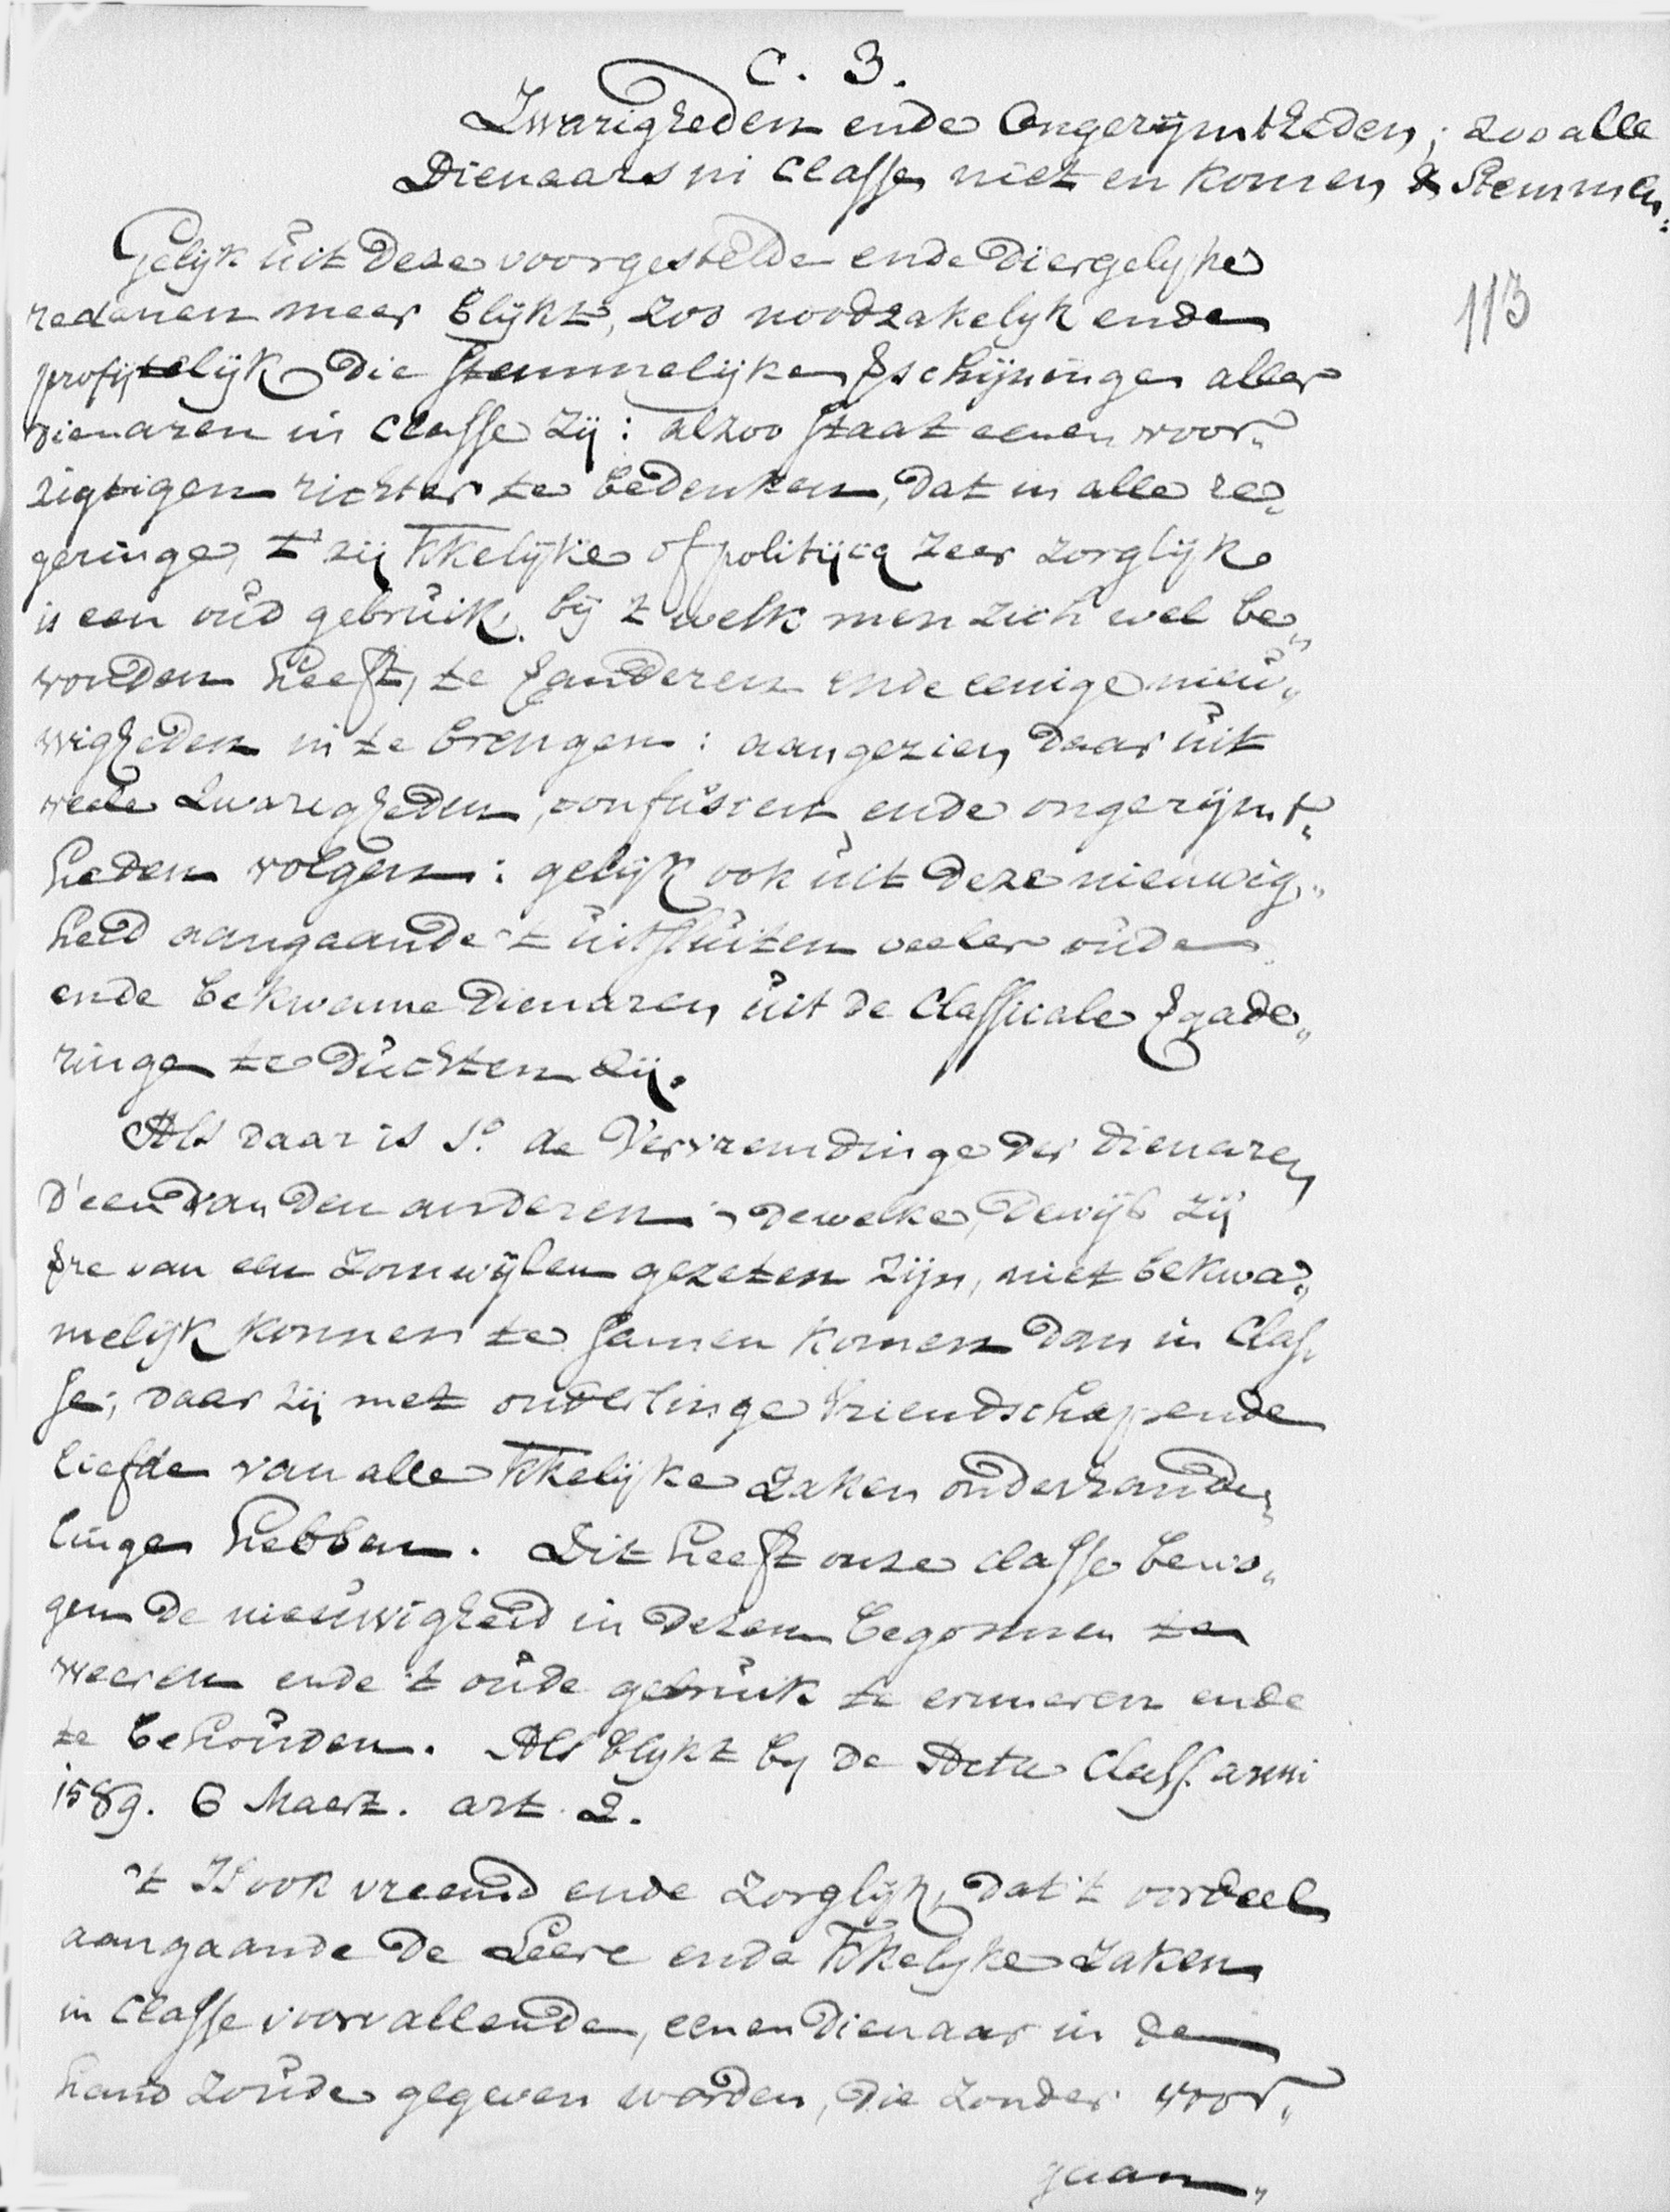 C. 3.
Zwarigheden ende Ongerijmtheden, zoo alle
Dienaars in Classe niet en komen & Stemmen.
Gelijk uit deze voorgestelde ende diergelijke
redenen meer blijkt, zoo noodzakelijk ende
profijtelijk die stemmelijke schijninge aller
dienaren in Classe zij: alzoo staat eenen voor„
zigtigen richter te bedenken, dat in alle re„
geringe, 't zij Kkelijke of politijcq zeer zorglijk
is een oud gebruik, bij 't welk men zich wel be„
vonden heeft, te anderen ende eenige nieu„
wigheden in te brengen: aangezien daar uit
veele zwarigheden, confusien ende ongerijmt„
heden volgen: gelijk ook uit deze nieuwig„
heid aangaande 't uitsluiten veeler oude
ende bekwame Dienaren uit de Classicale gade„
ringe te duchten zij.
Als daar is 1º. de Vervremdinge der dienaren
d'een van den anderen; dewelke, dewijl zij
vre van een zomwijlen gezeten zijn, niet bekwa„
melijk konnen te samen komen dan in Clas„
se; daar zij met onderlinge vriendschap ende
liefde van alle Kkelijke zaken onderhande„
linge hebben. Dit heeft onze classe bewo„
gen de nieuwigheid in dezen begonnen te
weeren ende 't oude gebruik te erinneren ende
te behouden. Als blijkt by de Acta Class. anni
1589. 6 Maert. art. 2.
't Is ook vreemd ende zorglijk, dat 't oordeel
aangaande de Leere ende Kkelijke zaken
in Classe voorvallende, eenen Dienaar in de
hand zoude gegeven worden, die zonder voor„
gaan„
113